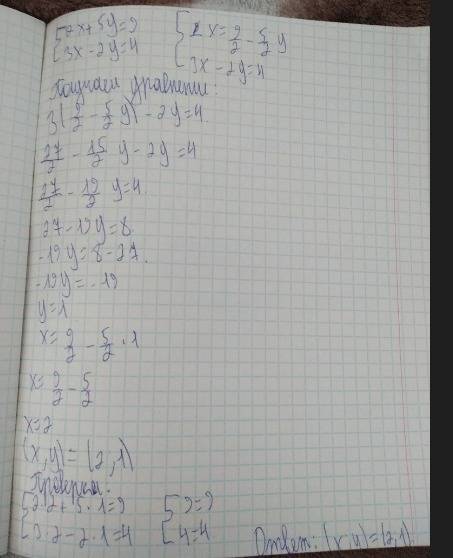 {2x+5y=9 {x=9/2-5/2y
{3x-2y=4 {3x-2y=4
Получаем уравнение:
3(9/2-5/2y)-2y=4
27/2-15/2y-2y=4
27/2-19/2y=4
27-19y=8
-19y=8-27.
-19y=-19
y=1
x=9/2-5/2·1
x=9/2-5/2
x=2
(x,y)=(2,1)
Проверка:
{2·2+5·1=9 {9=9
{3·2-2·1=4 {4=4 Ответ: (x,y)=(2,1)